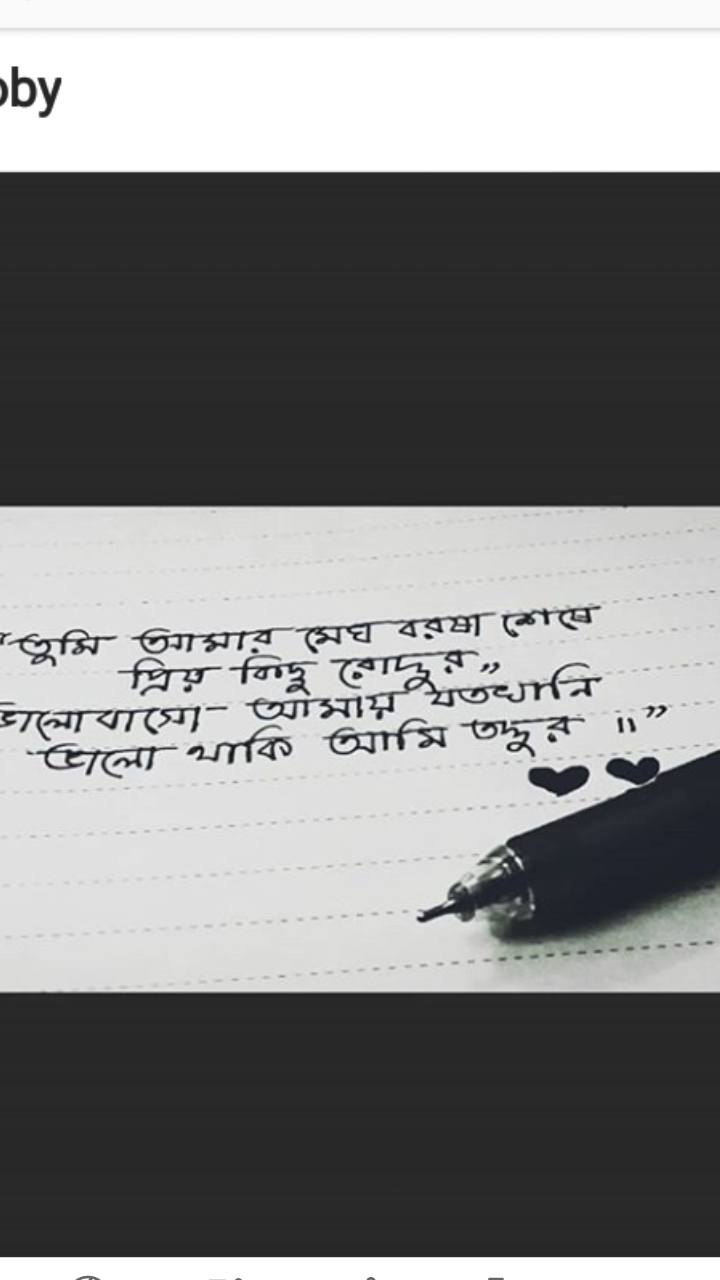 oby
"তুমি আমার মেঘ বরষা শেষে
প্রিয় কিছু রোদ্দুর,,
ভালোবাসো- আমায় যতখানি
ভালো থাকি আমি তদ্দুর ॥"